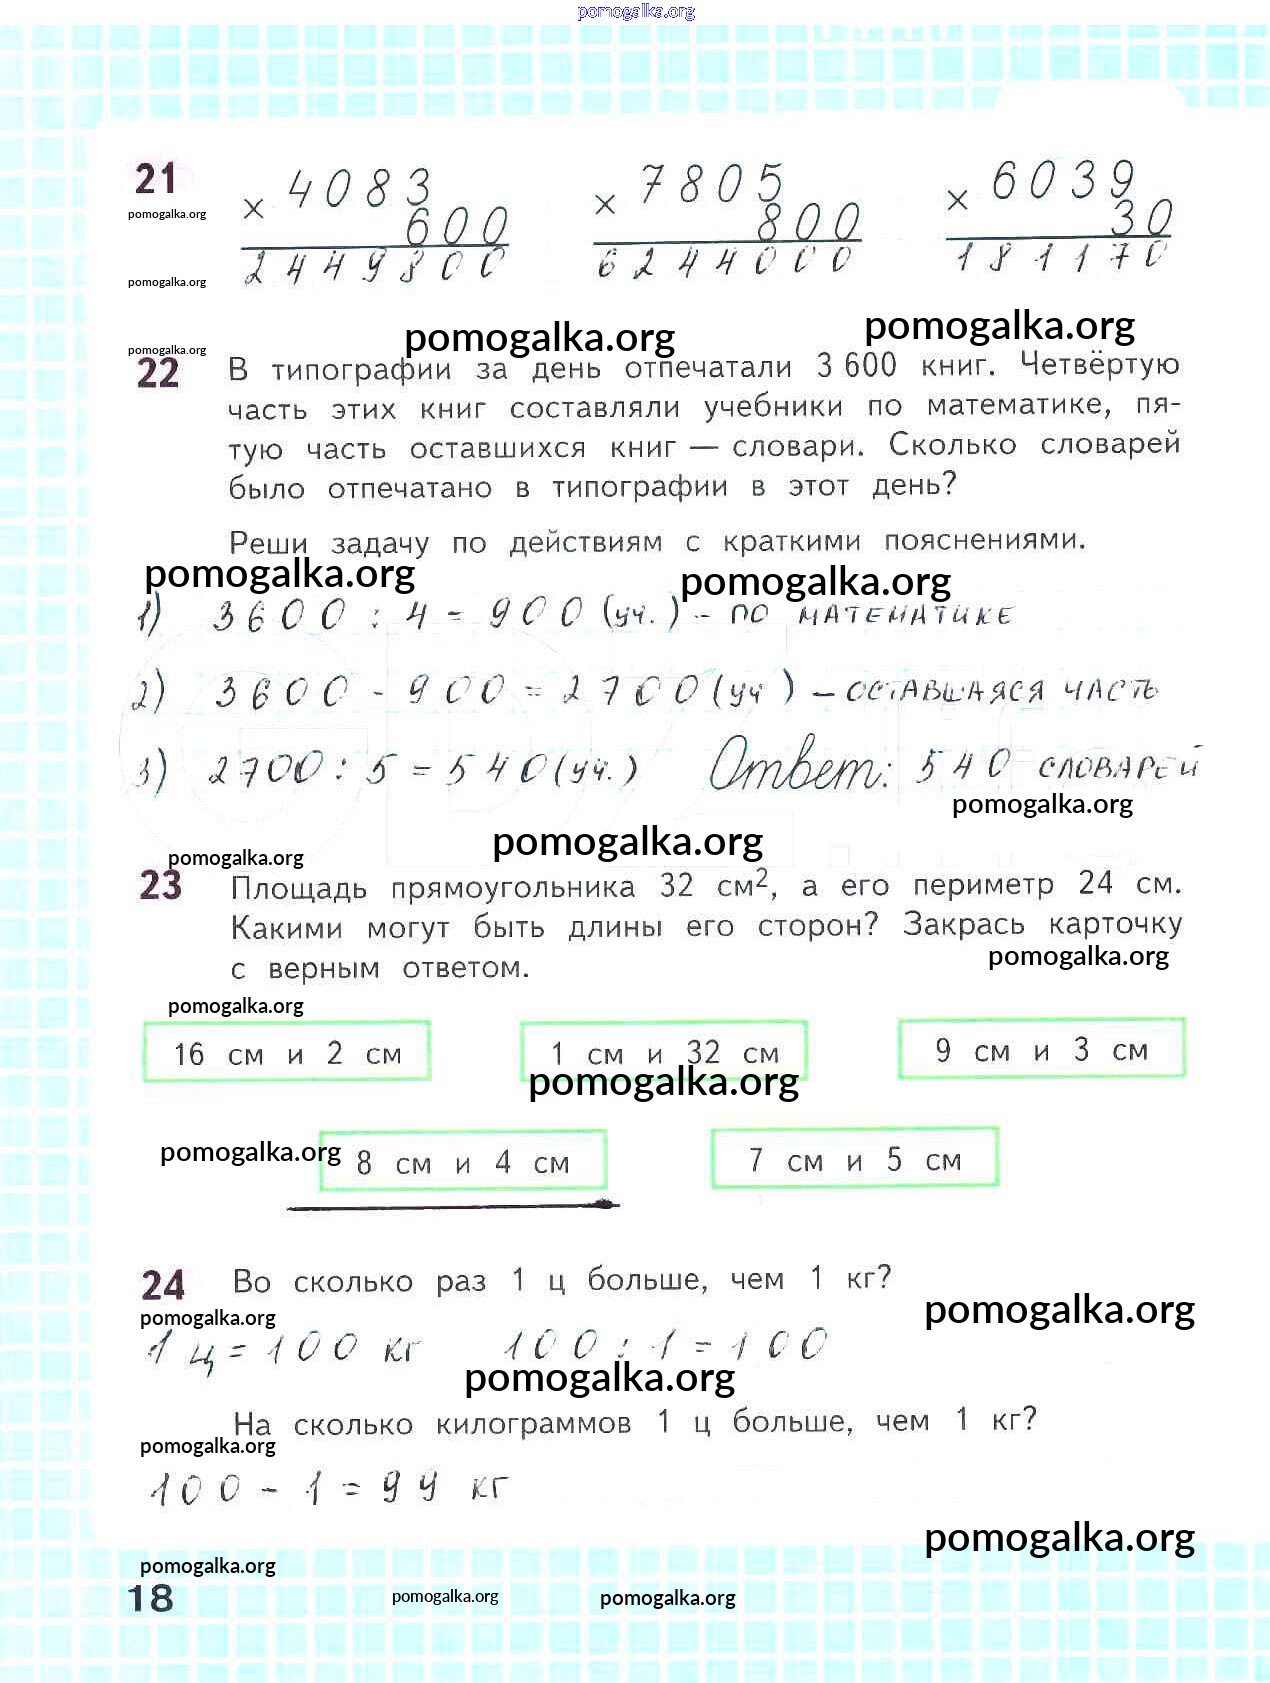 pomogalka.org
21
× 4083 × 7805 × 6039
pomogalka.org
600 800 30
2449800 6244000 181170
pomogalka.org
pomogalka.org pomogalka.org
pomogalka.org
22 В типографии за день отпечатали 3 600 книг. Четвёртую
часть этих книг составляли учебники по математике, пя-
тую часть оставшихся книг — словари. Сколько словарей
было отпечатано в типографии в этот день?
Реши задачу по действиям с краткими пояснениями.
pomogalka.org pomogalka.org
1) 3600 : 4 = 900 (уч.) - по математике
2) 3600 - 900 = 2700 (уч) - оставшаяся часть
3) 2700 : 5 = 540 (уч.) Ответ: 540 словарей
pomogalka.org
pomogalka.org
pomogalka.org
23 Площадь прямоугольника 32 см², а его периметр 24 см.
Какими могут быть длины его сторон? Закрась карточку
с верным ответом.
pomogalka.org
pomogalka.org
16 см и 2 см 1 см и 32 см 9 см и 3 см
pomogalka.org
pomogalka.org
8 см и 4 см 7 см и 5 см
24 Во сколько раз 1 ц больше, чем 1 кг?
pomogalka.org pomogalka.org
1 ц = 100 кг 100 : 1 = 100
pomogalka.org
На сколько килограммов 1 ц больше, чем 1 кг?
pomogalka.org
100 - 1 = 99 кг
pomogalka.org
pomogalka.org
18 pomogalka.org pomogalka.org